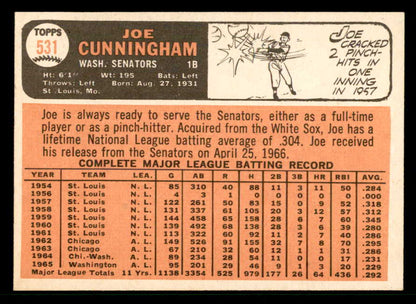 TOPPS
531
JOE
CUNNINGHAM
WASH. SENATORS 1B
Ht: 6'1" Wt: 195 Bats: Left
Throws: Left Born: Aug. 27, 1931
St. Louis, Mo.
JOE
CRACKED
2 PINCH-
HITS IN
ONE
INNING
IN 1957
Joe is always ready to serve the Senators, either as a full-time
player or as a pinch-hitter. Acquired from the White Sox, Joe has
a lifetime National League batting average of .304. Joe received
his release from the Senators on April 25, 1966.
COMPLETE MAJOR LEAGUE BATTING RECORD
YEAR TEAM LEA. G AB R H 2B 3B HR RBI AVG.
1954 St. Louis N. L. 85 310 40 88 11 3 11 50 .284
1956 St. Louis N. L. 4 3 1 0 0 0 0 0 .000
1957 St. Louis N. L. 122 261 50 83 15 0 9 52 .318
1958 St. Louis N. L. 131 337 61 105 20 3 12 57 .312
1959 St. Louis N. L. 144 458 65 158 28 6 7 60 .345
1960 St. Louis N. L. 139 492 68 138 28 3 6 39 .280
1961 St. Louis N. L. 113 322 60 92 11 2 7 40 .286
1962 Chicago A. L. 149 526 91 155 32 7 8 70 .295
1963 Chicago A. L. 67 210 32 60 12 1 1 31 .286
1964 Chi.-Wash. A. L. 89 234 28 54 11 0 0 17 .231
1965 Washington A. L. 95 201 29 46 9 1 3 20 .229
Major League Totals 11 Yrs. 1138 3354 525 979 177 26 64 436 .292